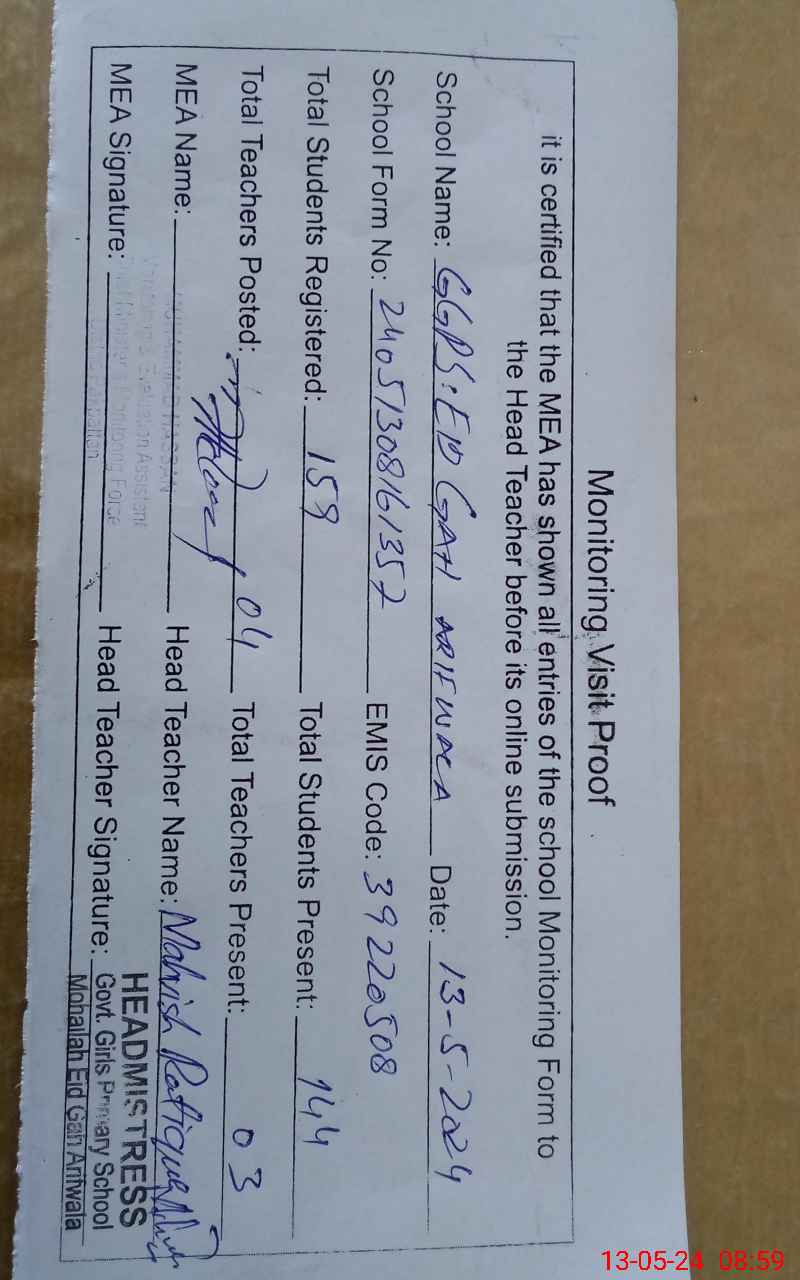 Monitoring Visit Proof
it is certified that the MEA has shown all entries of the school Monitoring Form to
the Head Teacher before its online submission.
School Name: GGPS: EID GAH ARIFWALA Date: 13-5-2024
School Form No: 24051308161357 EMIS Code: 39220508
Total Students Registered: 159 Total Students Present: 144
Total Teachers Posted: 04 Total Teachers Present: 03
MEA Name: Head Teacher Name: Mahvish Rafique
MUHAMMAD HASSAN
Monitoring & Evaluation Assistant
Chief Minister's Monitoring Force
MEA Signature: Head Teacher Signature:
HEADMISTRESS
Govt. Girls Primary School
Mohallah Eid Gah Arifwala
13-05-24 08:59